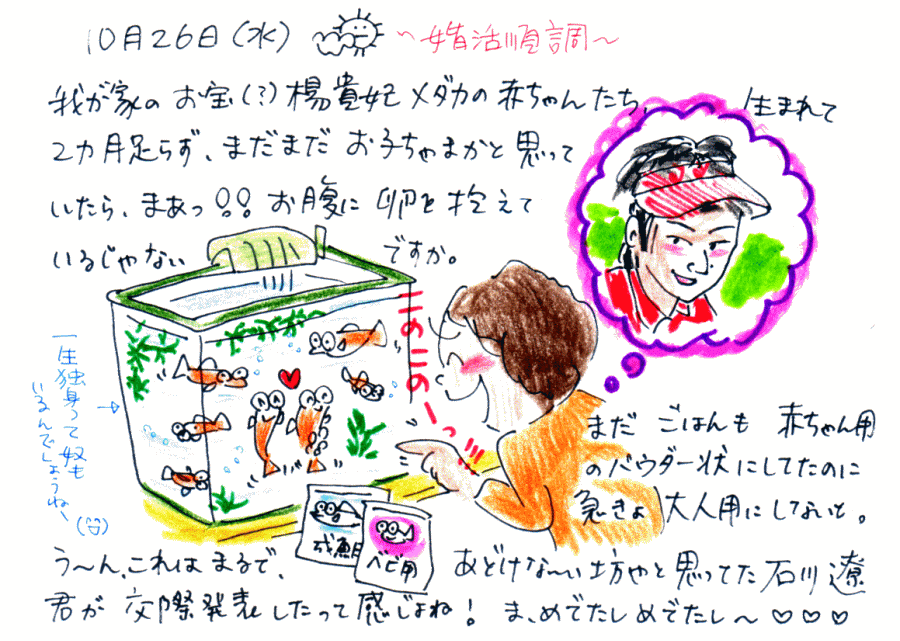 10月26日(水) ～婚活順調～
我が家の お宝(?)楊貴妃メダカの赤ちゃんたち、生まれて
2カ月足らず、まだまだ お子ちゃまかと思って
いたら、まあっ!! お腹に 卵を抱えて
いるじゃない ですか。
このこのーっ
一生独身って奴も
いるんでしょうねー
まだ ごはんも 赤ちゃん用
のパウダー状にしてたのに
急きょ 大人用にしないと。
成魚用
ベビ用
う〜ん、これは まるで、 あどけな〜い坊やと思ってた 石川 遼
君が 交際発表 したって感じよね! ま、めでたしめでたし〜♡♡♡